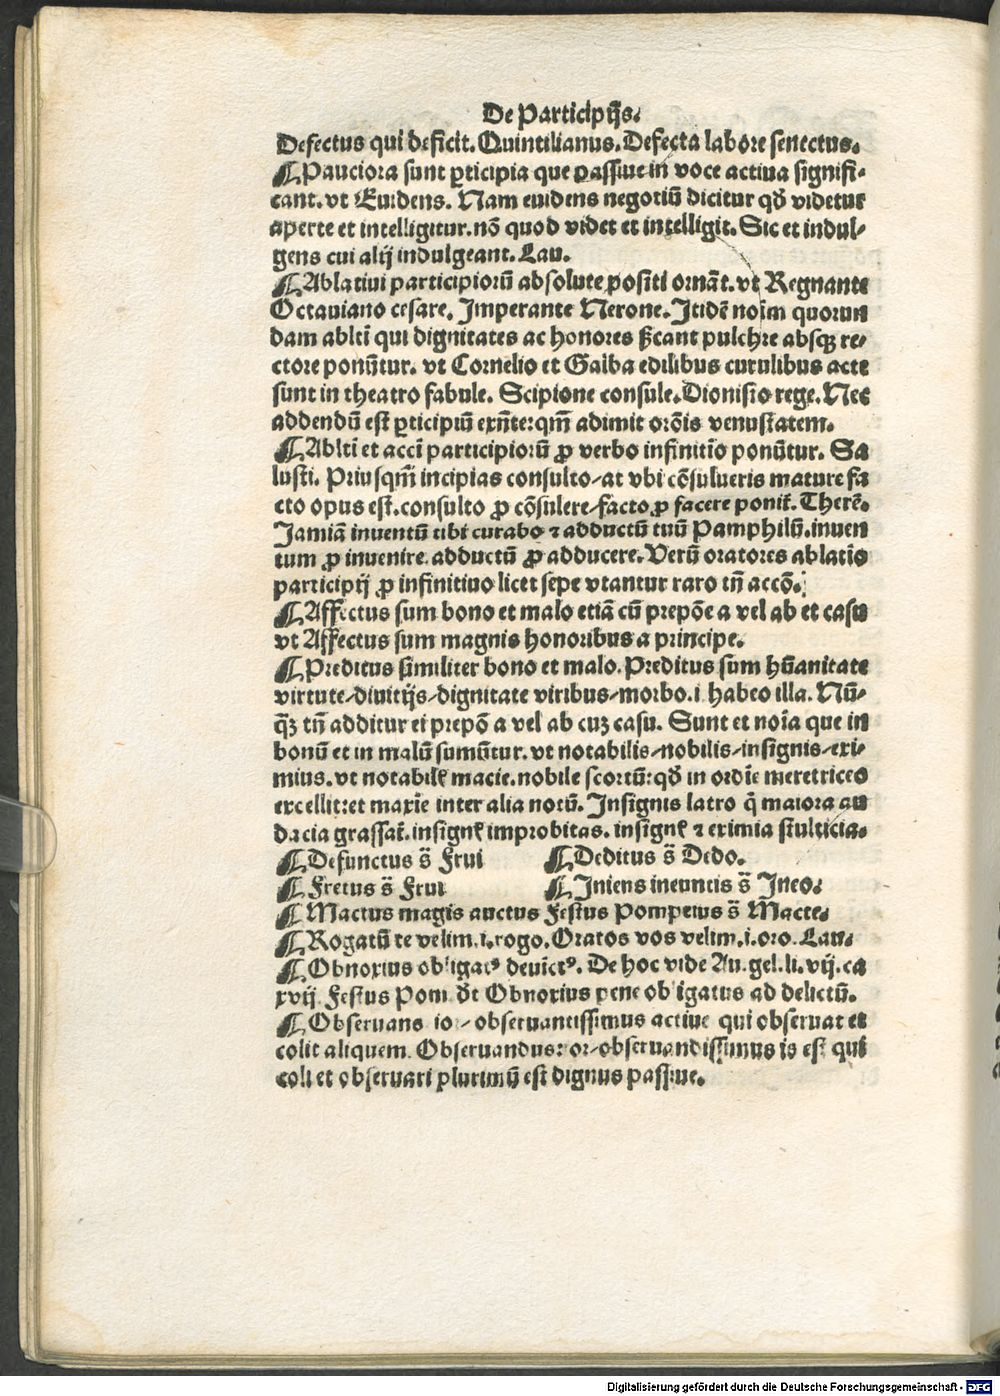 De Participijs.
Defectus qui deficit. Quintilianus. Defecta labore senectus.
¶ Pauciora sunt ꝑticipia que passiue in voce actiua signifi-
cant. vt Euidens. Nam euidens negotiū dicitur qđ videtur
aperte et intelligitur. nō quod videt et intelligit. Sic et indul-
gens cui alij indulgeant. Lau.
¶ Ablatiui participiorū absolute positi ornāt. vt Regnante
Octauiano cesare. Imperante Nerone. Itidē noīm quorun
dam abltī qui dignitates ac honores
pulchre absqꝫ re-
ctore ponūtur. vt Cornelio et Galba edilibus curulibus acte
sunt in theatro fabule. Scipione consule. Dionisio rege. Nec
addendū est ꝑticipiū exn̄te: qm̄ adimit orōis venustatem.
¶ Abltī et accī participiorū ꝓ verbo infinitīo ponūtur. Sa
lusti. Priusqm̄ incipias consulto-at vbi cōsulueris mature fa
cto opus est. consulto ꝓ cōsulere-facto ꝓ facere ponit̄. Therē.
Jamiā inuentū tibi curabo ⁊ adductū tuū Pamphilū. inuen
tum ꝓ inuenire. adductū ꝓ adducere. Verū oratores ablatīo
participij ꝓ infinitiuo licet sepe vtantur raro tn̄ accō.
¶ Affectus sum bono et malo etiā cū prepōe a vel ab et casu
vt Affectus sum magnis honoribus a principe.
¶ Preditus similiter bono et malo. Preditus sum hūanitate
virtute-diuitijs-dignitate viribus-morbo. i. habeo illa. Nū-
qꝫ tn̄ additur ei prepō a vel ab cuꝫ casu. Sunt et noīa que in
bonū et in malū sumūtur. vt notabilis-nobilis-insignis-exi-
mius. vt notabilꝭ macie. nobile scortū: qđ in ordīe meretrices
excellit: et maxīe inter alia notū. Insignis latro q̄ maiora au
dacia grassat̄. insignꝭ improbitas. insignꝭ ⁊ eximia stulticia.
¶ Defunctus s̄ Frui ¶ Deditus s̄ Dedo.
¶ Fretus s̄ Frui ¶ Iniens ineuntis s̄ Ineo.
¶ Mactus magis auctus Festus Pompeius s̄ Macte.
¶ Rogatū te velim. i. rogo. Oratos vos velim. i. oro. Lau.
¶ Obnoxius obligatꝰ deuictꝰ. De hoc vide Au. gel. li. vij. ca
xvij. Festus Pom. Obnoxius pene obligatus ad delictū.
¶ Obseruans ior- obseruantissimus actiue qui obseruat et
colit aliquem. Obseruandus: or-obseruandissimus is est qui
coli et obseruari plurimū est dignus passiue.
Digitalisierung gefördert durch die Deutsche Forschungsgemeinschaft - DFG